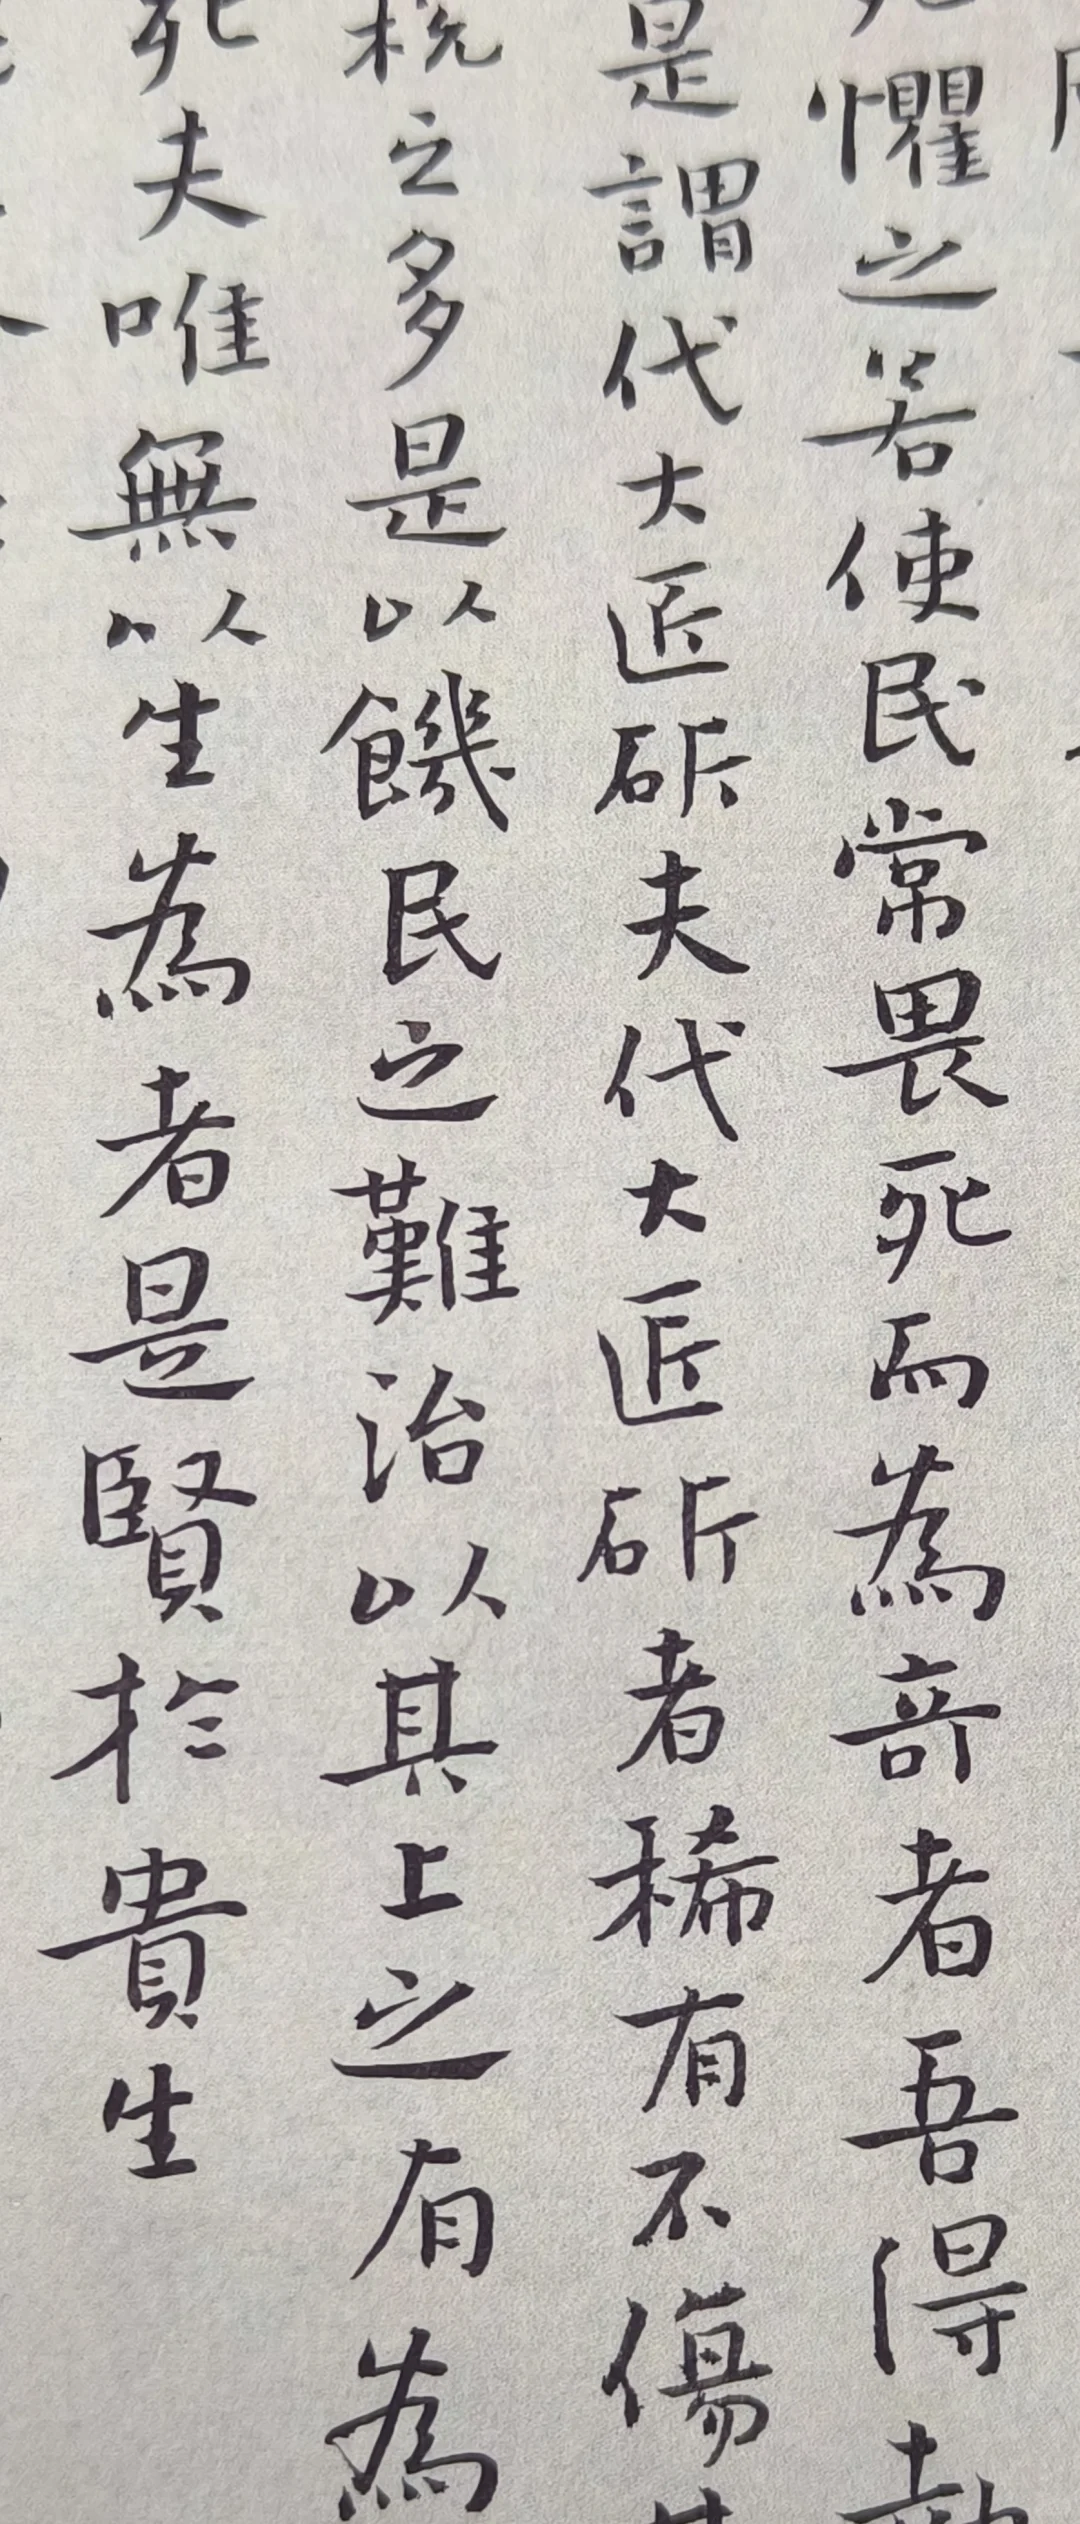 死懼之若使民常畏死而為奇者吾得執
是謂代大匠斲夫代大匠斲者稀有不傷其
税之多是以饑民之難治以其上之有為
死夫唯無以生為者是賢於貴生